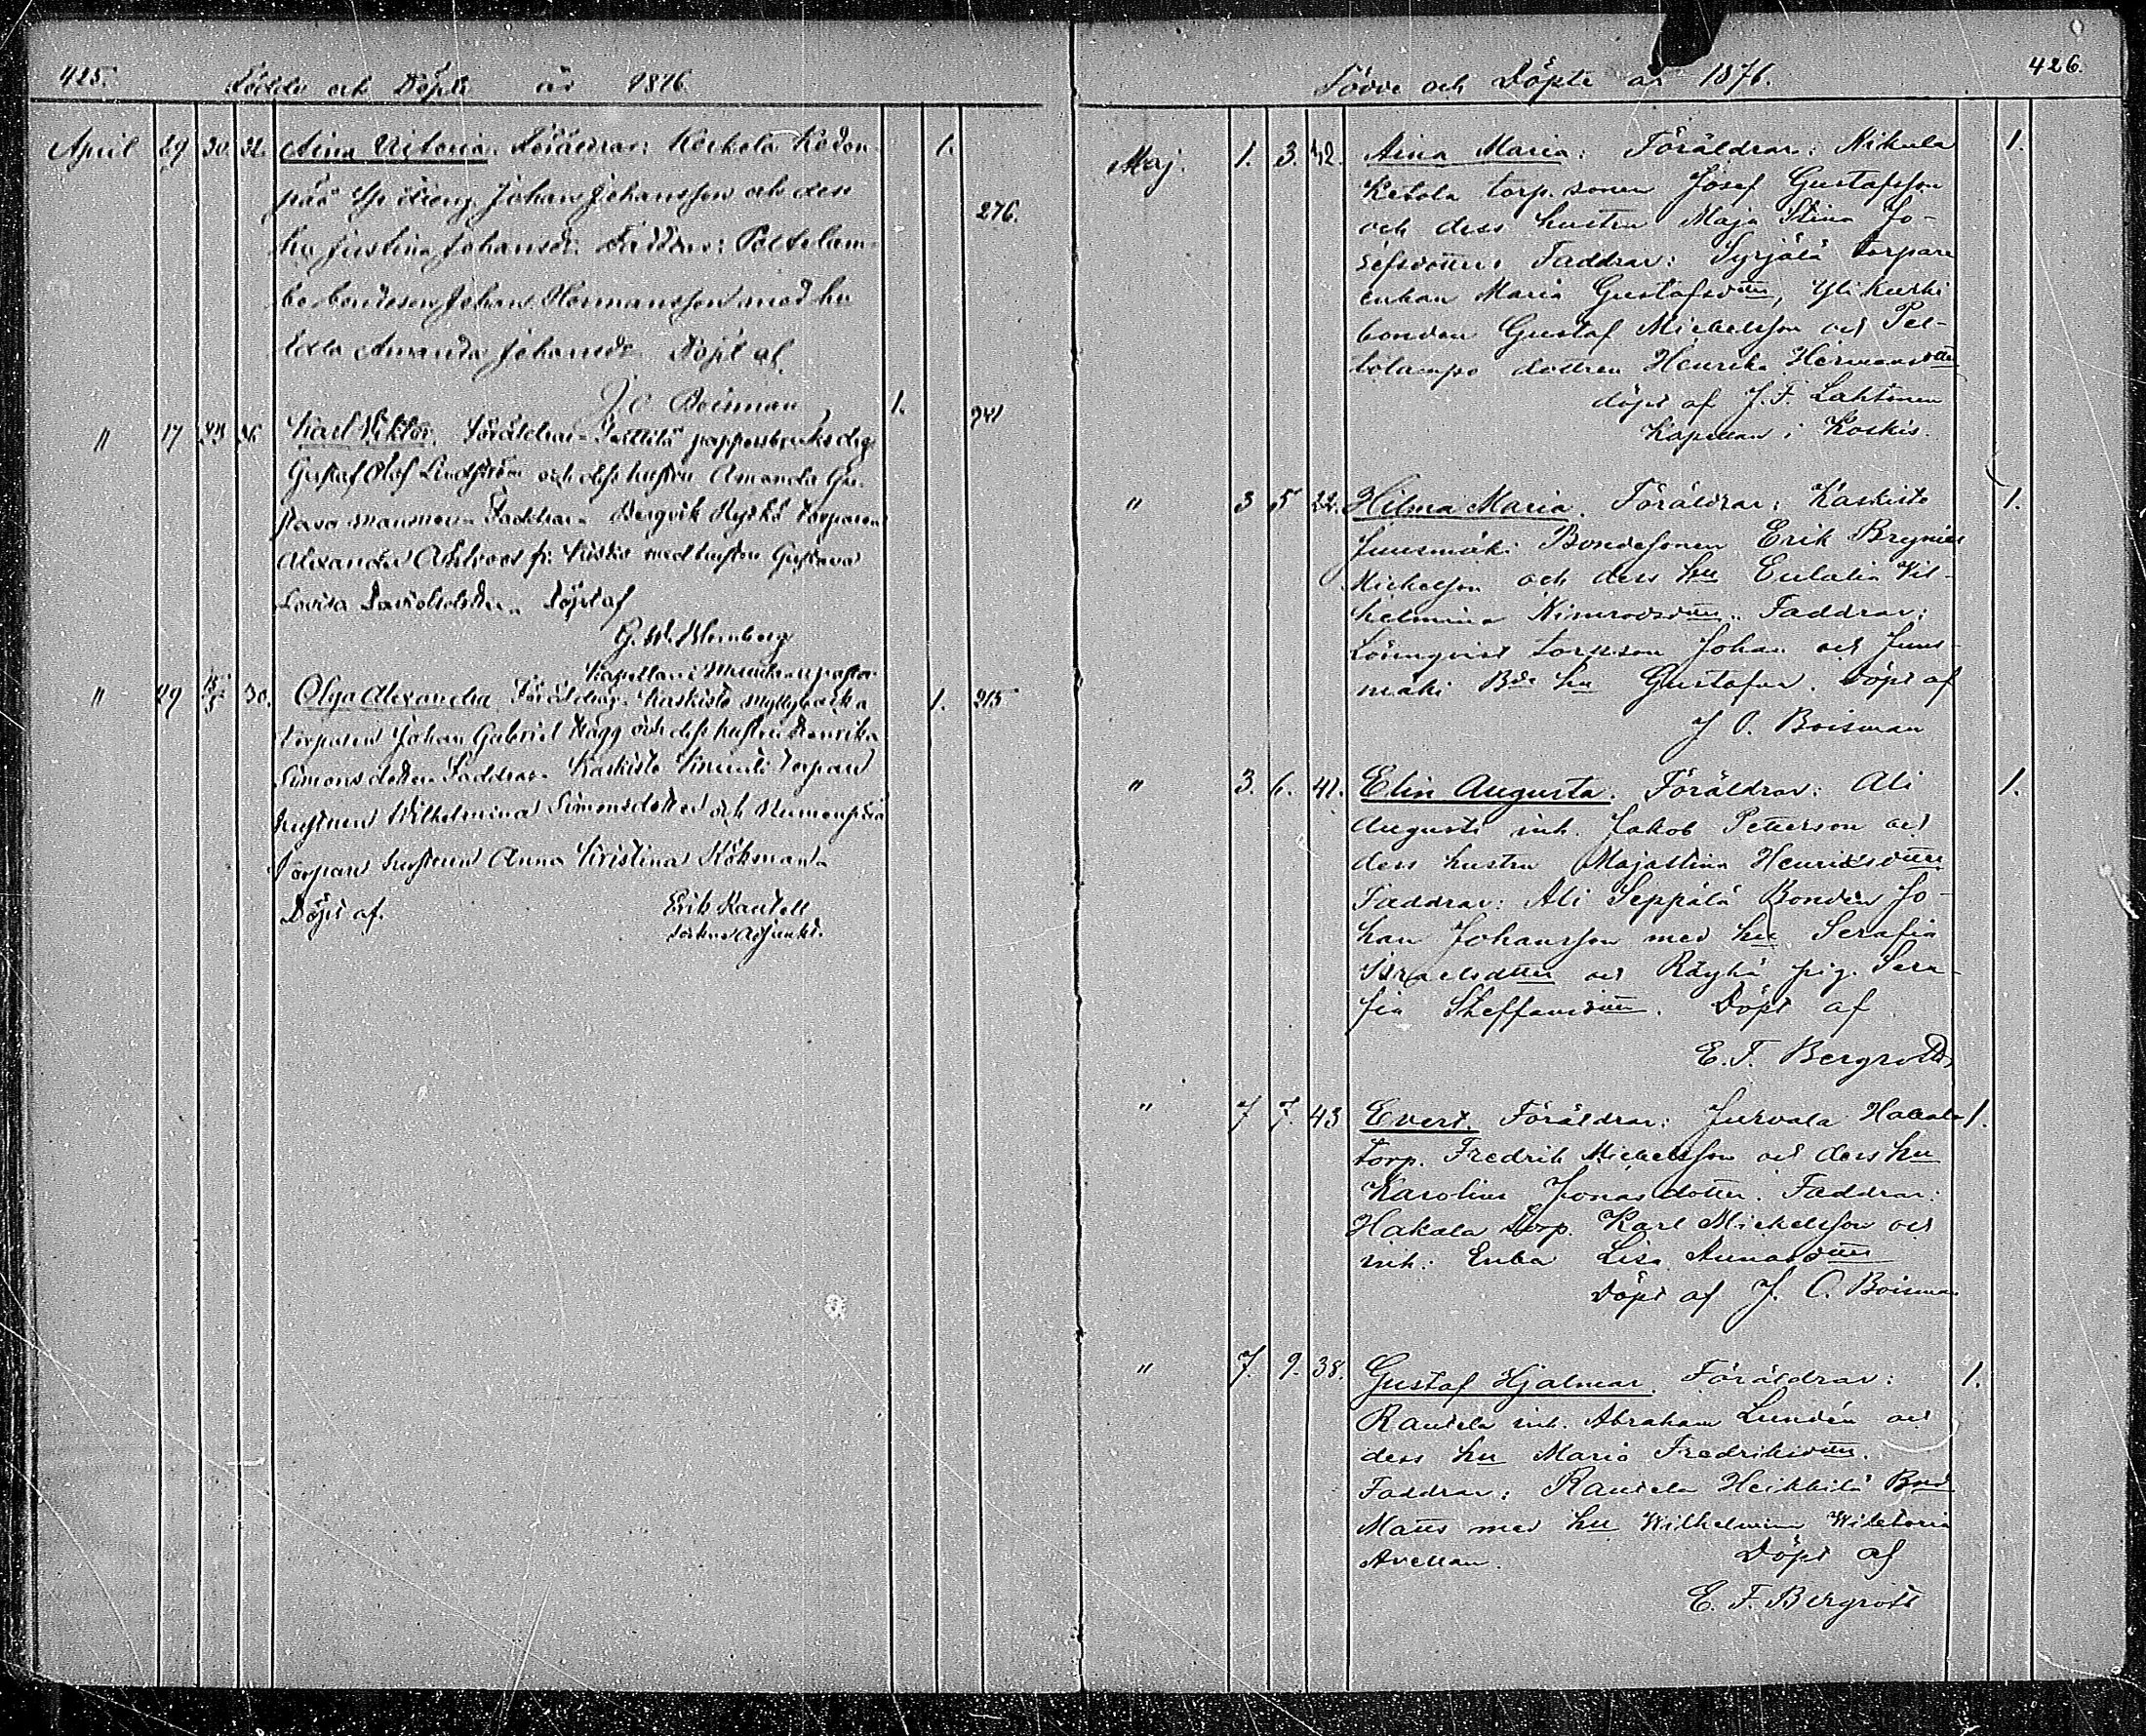 425. Födde och Döpte år 1876.
April 29 30. 32. Aina Victoria. Föräldrar: Keskola Kedon-
pää Sp. dreng Johan Johansson och dess
hu Justina Johansdr. Faddrar: Peltolam-
bo bondeson Johan Hermansson med hu
Amanda Johansdr. Döpt af
J. O. Boisman 1. 276.
" 17 23 36 Karl Viktor. Föräldrar: pappersbruks
Gustaf Olof Lindström och dess hustru Amanda Gu-
stava Faddrar: Bergvik torparen
Alexander med hustru Gustava
Lovisa Döpt af
G. W.
Kapellan i
1. 241
" 29 30. Olga Alexandra. Föräldrar: Kaskisto
torparen Johan Gabriel Hägg och dess hustru Henrika
Simonsdotter. Faddrar: Kaskisto torpare
hustrun Wilhelmina Simonsdotter och
Torpare hustrun Anna Kristina Stökman.
Döpt af. Erik Rantell
sockne Adjunkt.
1. 215
Födde och Döpte år 1876. 426.
Maj. 1. 3. 42. Aina Maria: Föräldrar: Nikula 1.
Ketola torp. sonen Josef Gustafsson
och dess hustru Maja Stina Jo-
sefsdotter. Faddrar: Syrjälä torpare
enkan Maria Gustafsdttr, Yli Kurki
bonden Gustaf Michelsson och Pel-
tolampo dottren Henrika Hermansdttr
döpt af J. F. Lahtinen
Kapellan i Koskis.
" 3 5 22. Hilma Maria. Föräldrar: Kaskisto 1.
Juusmäki Bondesonen Erik Brynier
Mickelson och dess hu Eulalia Wil-
helmina Nimrodsdttr. Faddrar:
Lönnqvist torp. son Johan och Juus-
mäki Bde hu Gustafva. Döpt af
J. O. Boisman
" 3. 6. 41. Elin Augusta. Föräldrar: Ali 1.
Augusti inh. Jakob Petterson och
dess hustru Majastina Henriksdotter
Faddrar: Ali Seppälä Bonden Jo-
han Johansson med hu Serafia
Israelsdtter och Räyhä pig. Sera-
fia Steffansdttr. Döpt af
E. F. Bergroth
" 7 7. 43 Evert. Föräldrar: Jurvala Hakala 1.
torp. Fredrik Michelsson och dess hu
Karolina Jonasdotter. Faddrar:
Hakala torp. Karl Mickelsson och
inh. Enka Lisa
Döpt af J. O. Boisman
" 7. 9. 38. Gustaf Hjalmar. Föräldrar: 1.
Rautela inh. Abraham Lundén och
dess hu Maria Fredriksdttr.
Faddrar: Rautela Heikkilä Bond
Matts med hu Wilhelmina Wiktoria
Avellan. Döpt af
E. F. Bergroth